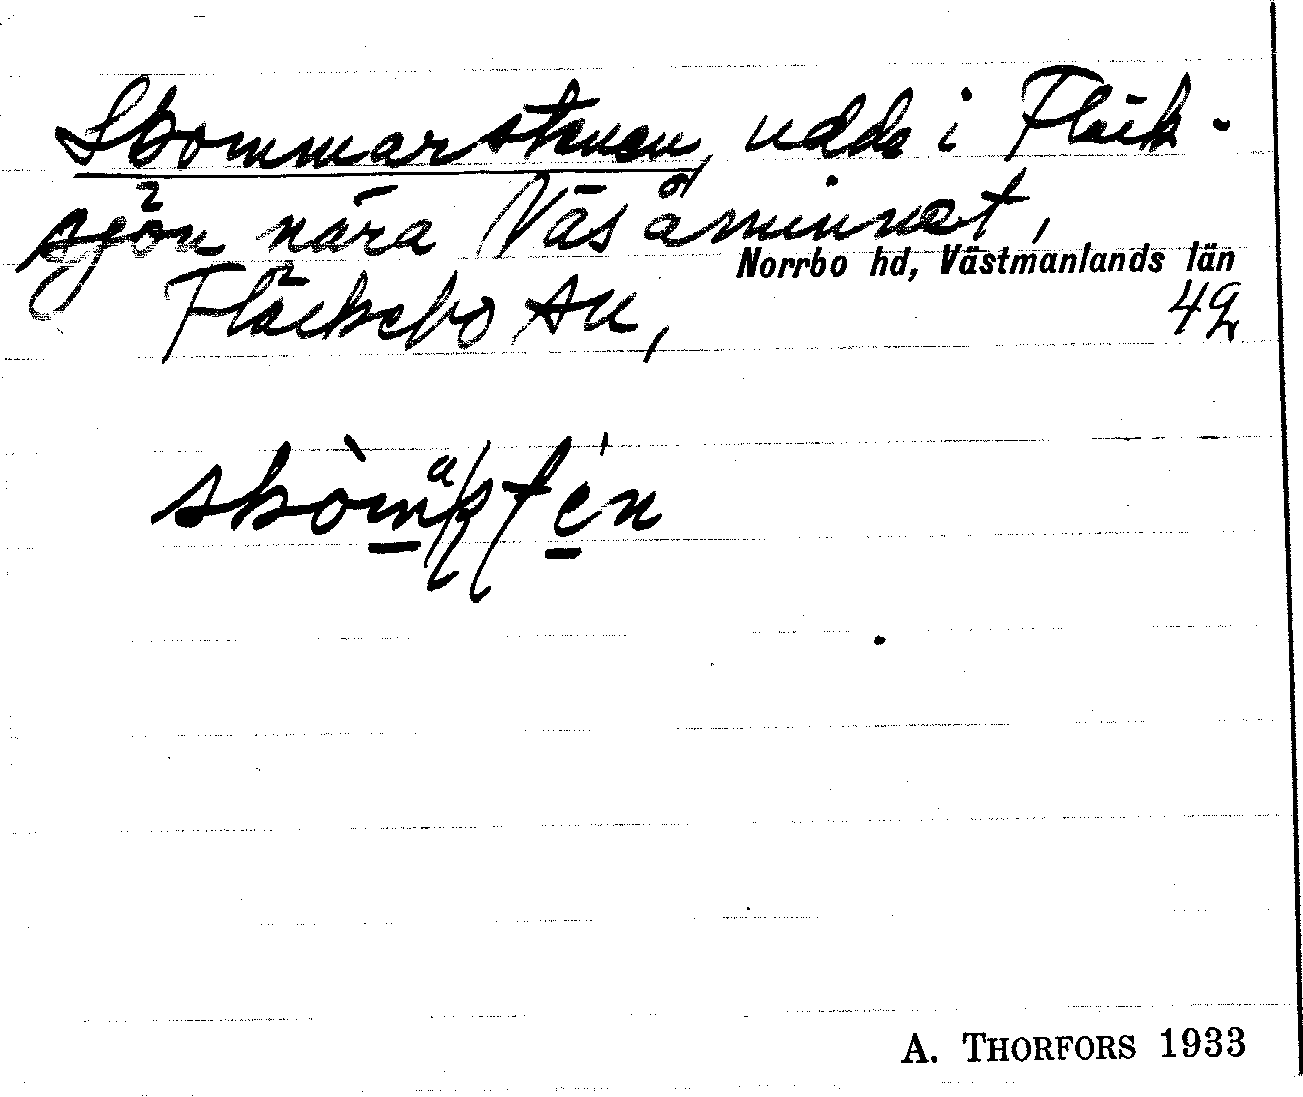 Skommarstenen, udde i Fläck-
sjön nära Väsåminnet,
Norrbo hd, Västmanlands län
Fläckebo sn, 42
A. THORFORS 1933